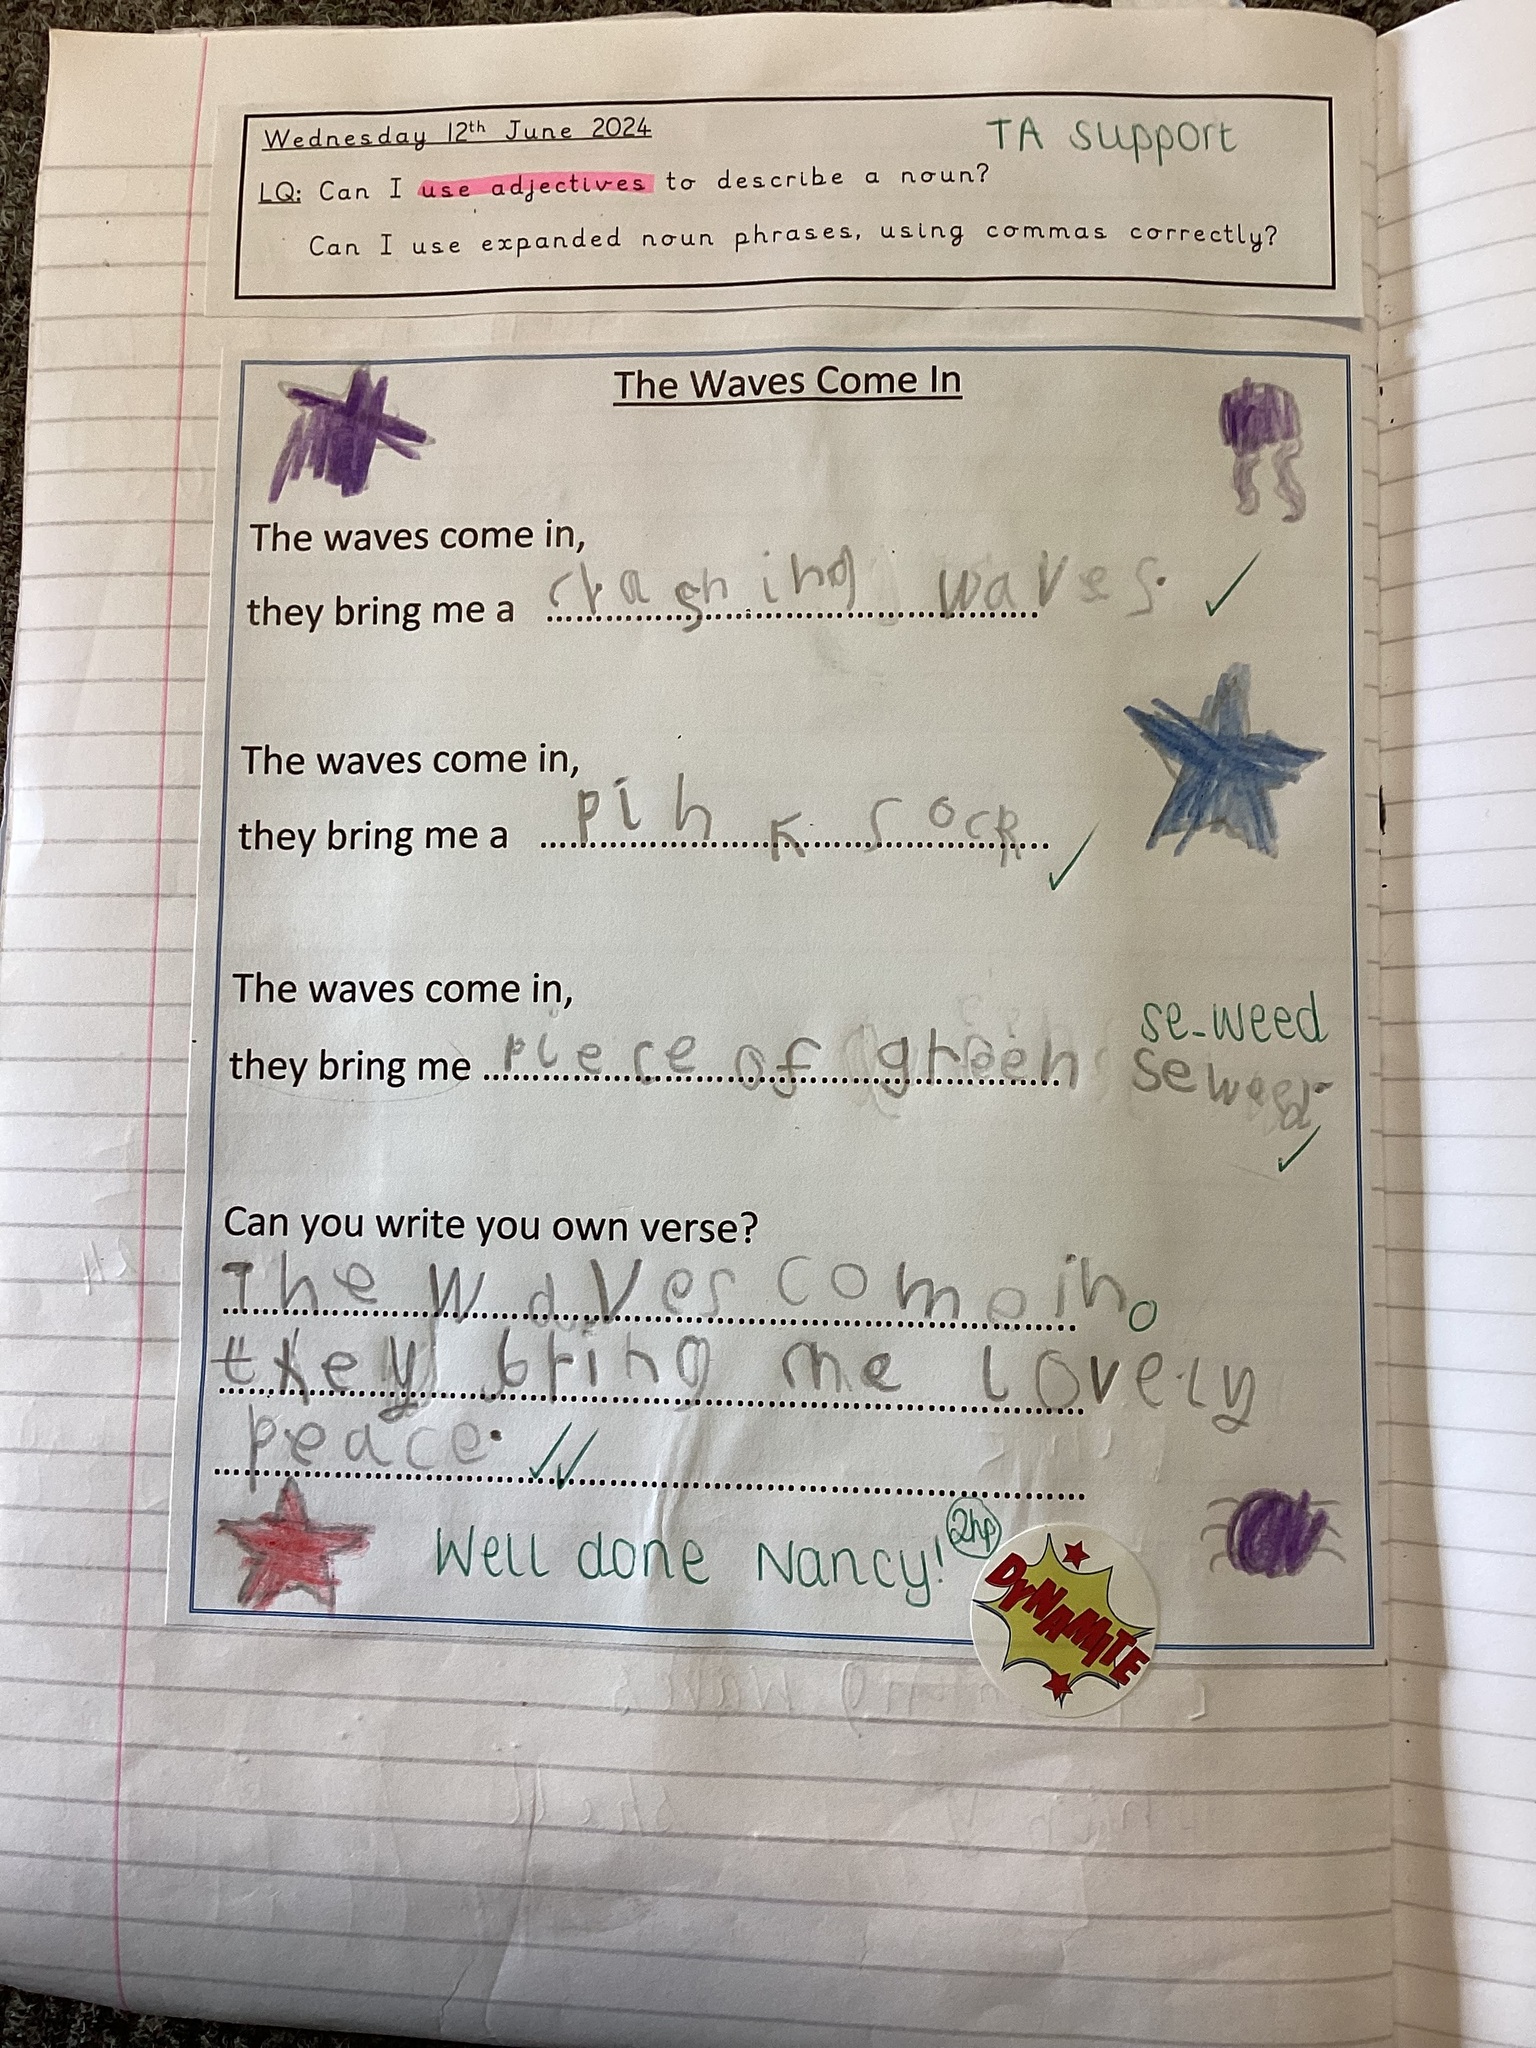 Wednesday 12th June 2024
TA support
LQ: Can I use adjectives to describe a noun?
Can I use expanded noun phrases, using commas correctly?
The Waves Come In
The waves come in,
they bring me a crashing waves.
The waves come in,
they bring me a pink sock
The waves come in,
se_weed
they bring me piece of green seweed.
Can you write you own verse?
The waves come in
they bring me lovely
peace.
Well done Nancy! 2hp
DYNAMITE